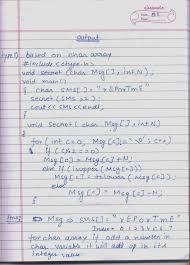 Output
Type 1) based on char array
#include <ctype.h>
void secret (char Msg[], int N);
void main()
{ char SMS[] = "
secret (SMS, 2);
cout << SMS << endl;
}
void secret (char Msg[], int N)
{
for (int C=0; Msg[C] != '\0'; C++)
if (C%2==0)
Msg[C] = Msg[C]+N;
else if (isupper(Msg[C]))
Msg[C] = tolower(Msg[C]);
else
Msg[C] = Msg[C]-N;
}
SMS[] =
Index = 0 1 2 3 4 5 6 7
for char array if add a number in
char variable it will add up in its
integer value